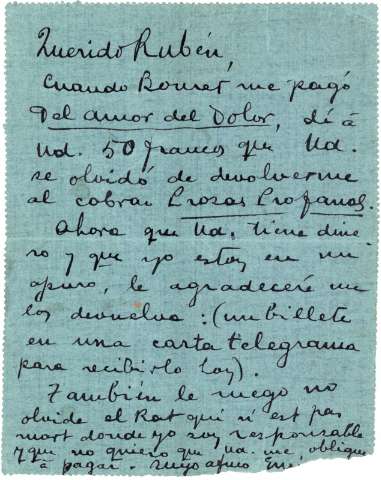 Querido Rubén,
Cuando Bouret me pagó
Del amor del Dolor, dí á
Ud. 50 francos que Ud.
se olvidó de devolverme
al cobrar Prosas Profanas.
Ahora que Ud. tiene dine-
ro y que yo estoy en un
apuro, le agradeceré me
los devuelva: (un billete
en una carta telegrama
para recibirlo hoy).
También le ruego no
olvide el Rat qui n'est pas
mort donde yo soy responsable
y que no quiero que Ud. me oblique
á pagar. Suyo afmo